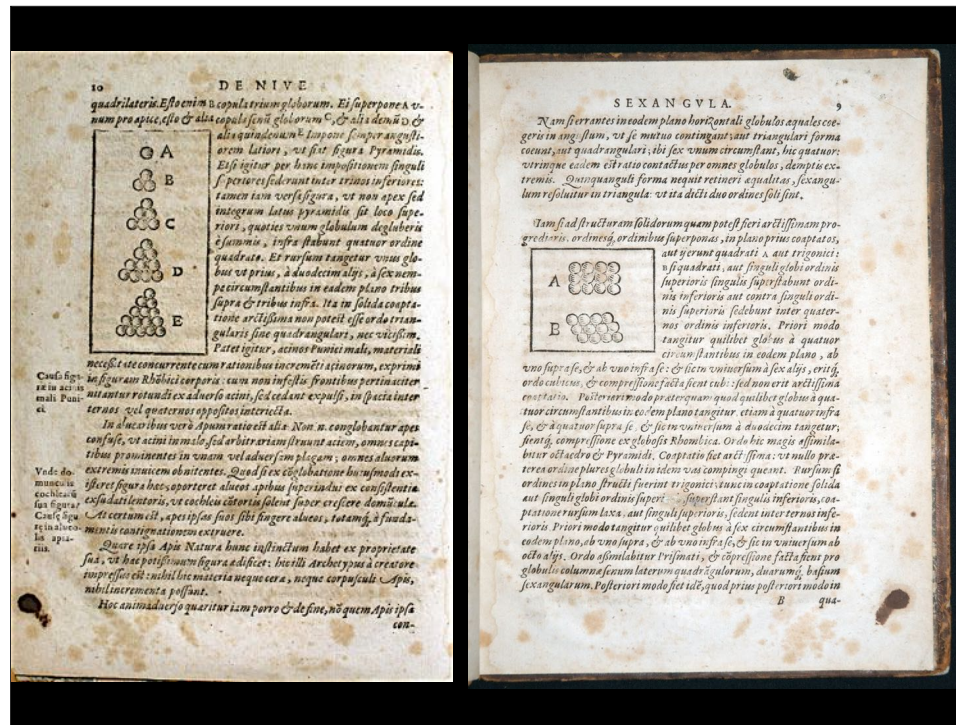 10 DE NIVE
quadrilateris. Eſto enim B copula trium globorum. Ei ſuperpone A v-
num pro apice, eſto & alia copula ſenũ globorum C, & alia denũ D &
alia quindenum E. Impone ſemper anguſti-
orem latiori, vt fiat figura Pyramidis.
Etſi igitur per hanc impoſitionem ſinguli
ſuperiores ſederunt inter trinos inferiores:
tamen iam verſa figura, vt non apex ſed
integrum latus pyramidis ſit loco ſupe-
riori, quoties vnum globulum degluberis
è ſummis, infra ſtabunt quatuor ordine
quadrato. Et rurſum tangetur vnus glo-
bus vt prius, à duodecim alijs, à ſex nem-
pe circumſtantibus in eadem plano tribus
ſupra & tribus infra. Ita in ſolida coapta-
tione arctißima non poteſt eſſe ordo trian-
gularis ſine quadrangulari, nec viciſſim.
Patet igitur, acinos Punici mali, materiali
neceßitate concurrente cum rationibus incremẽti acinorum, exprimi
in figuram Rhõbici corporis: cum non infeſtis frontibus pertinaciter
nitantur rotundi ex aduerſo acini, ſed cedant expulſi, in ſpacia inter
ternos vel quaternos oppoſitos interiecta.
In aluearibus verò Apum ratio eſt alia. Non n. conglobantur apes
confuſe, vt acini in malo, ſed arbitrariam ſtruunt aciem, omnes capi-
tibus prominentes in vnam vel aduerſam plagam; omnes aluorum
extremis inuicem obnitentes. Quod ſi ex cõglobatione huiuſmodi ex-
iſteret figura hæc, oporteret alueos apibus ſuperindui ex conſiſtentia
exſudati lentoris, vt cochleis cõtortis ſolent ſuper creſcere domũculæ.
At certum eſt, apes ipſas ſuos ſibi fingere alueos, totamq́, à funda-
mentis contignationem extruere.
Quare ipſa Apis Natura hunc inſtinctum habet ex proprietate
ſua, vt hac potißimum figura ædificet: hic illi Archetypus à creatore
impreſſus eſt: nihil hic materia neque ceræ, neque corpuſculi Apis,
nihil incrementa poſſunt.
Hoc animaduerſo quæritur iam porro & de fine, nõ quem Apis ipſa
con-
A
B
C
D
E
Cauſa figu-
ræ in acinis
mali Puni-
ci.
Vnde do-
muncula
cochlearũ
ſua figura?
Cauſę figu
rę in alueo-
lis apia-
riis.
SEXANGVLA. 9
Nam ſi errantes in eodem plano horizontali globulos æquales coe-
geris in anguſtum, vt ſe mutuo contingant; aut triangulari forma
coeunt, aut quadrangulari; ibi ſex vnum circumſtant, hic quatuor:
vtrinque eadem eſt ratio contactus per omnes globulos, demptis ex-
tremis. Quinquanguli forma nequit retineri æqualitas, ſexangu-
lum reſoluitur in triangula: vt ita dicti duo ordines ſoli ſint.
Iam ſi ad ſtructuram ſolidorum quam poteſt fieri arctiſſimam pro-
grediaris. ordinesq́, ordinibus ſuperponas, in plano prius coaptatos,
aut ij erunt quadrati A aut trigonici:
B ſi quadrati, aut ſinguli globi ordinis
ſuperioris ſingulis ſuperſtabunt ordi-
nis inferioris aut contra ſinguli ordi-
nis ſuperioris ſedebunt inter quater-
nos ordinis inferioris. Priori modo
tangitur quilibet globus à quatuor
circumſtantibus in eodem plano, ab
vno ſupra ſe, & ab vno infra ſe: & ſic in vniuerſum à ſex alijs, eritq́,
ordo cubicus, & compreſſione facta fient cubi: ſed non erit arctiſſima
coaptatio. Poſteriori modo præterquam quod quilibet globus à qua-
tuor circumſtantibus in eodem plano tangitur. etiam à quatuor infra
ſe, & à quatuor ſupra ſe, & ſic in vniuerſum à duodecim tangetur;
fientq́, compreſſione ex globoſis Rhombica. Ordo hic magis aſſimila-
bitur octaedro & Pyramidi. Coaptatio fiet arctiſſima: vt nullo præ-
terea ordine plures globuli in idem vas compingi queant. Rurſum ſi
ordines in plano ſtructi fuerint trigonici; tunc in coaptatione ſolida
aut ſinguli globi ordinis ſuperi ſuperſtant ſingulis inferioris, coa-
ptatione rurſum laxa, aut ſinguli ſuperioris, ſedent inter ternos infe-
rioris. Priori modo tangitur quilibet globus à ſex circumſtantibus in
eodem plano, ab vno ſupra, & ab vno infra ſe, & ſic in vniuerſum ab
octo alijs. Ordo aſſimilabitur Priſmati, & cõpreſſione facta fient pro
globulis columnæ ſenum laterum quadrãgulorum, duarumq́, baſium
ſexangularum. Poſteriori modo fiet idẽ, quod prius poſteriori modo in
B qua-
A
B